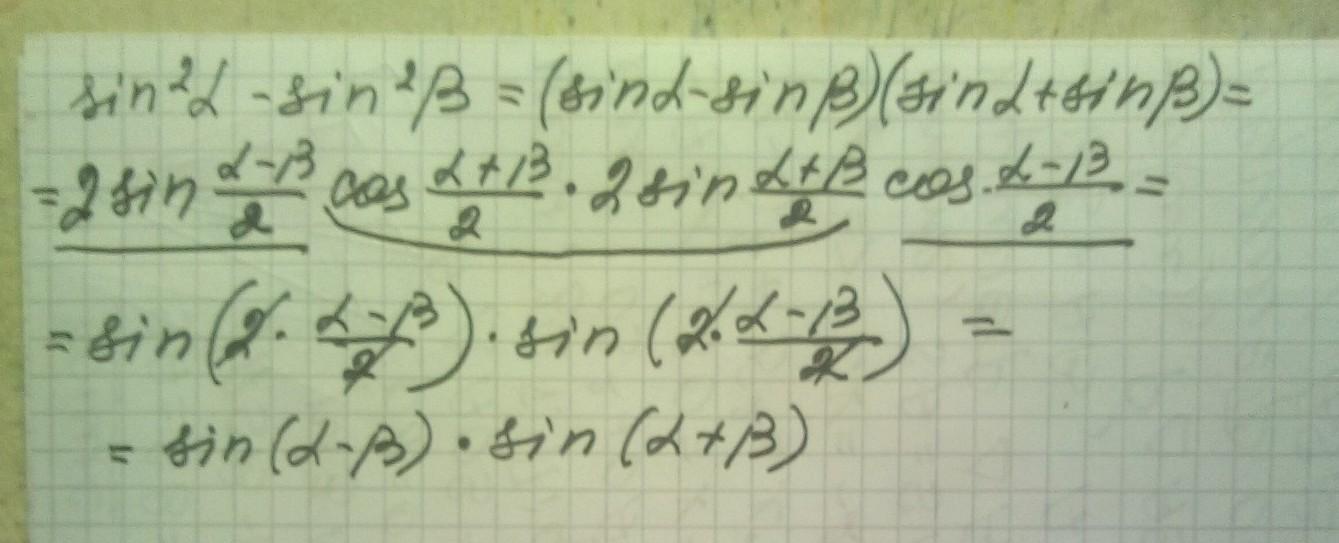 sin²α - sin²β = (sinα - sinβ)(sinα + sinβ) =
= 2 sin (α-β)/2 cos (α+β)/2 · 2 sin (α+β)/2 cos (α-β)/2 =
= sin (2 · (α-β)/2) · sin (2 · (α-β)/2) =
= sin(α-β) · sin(α+β)